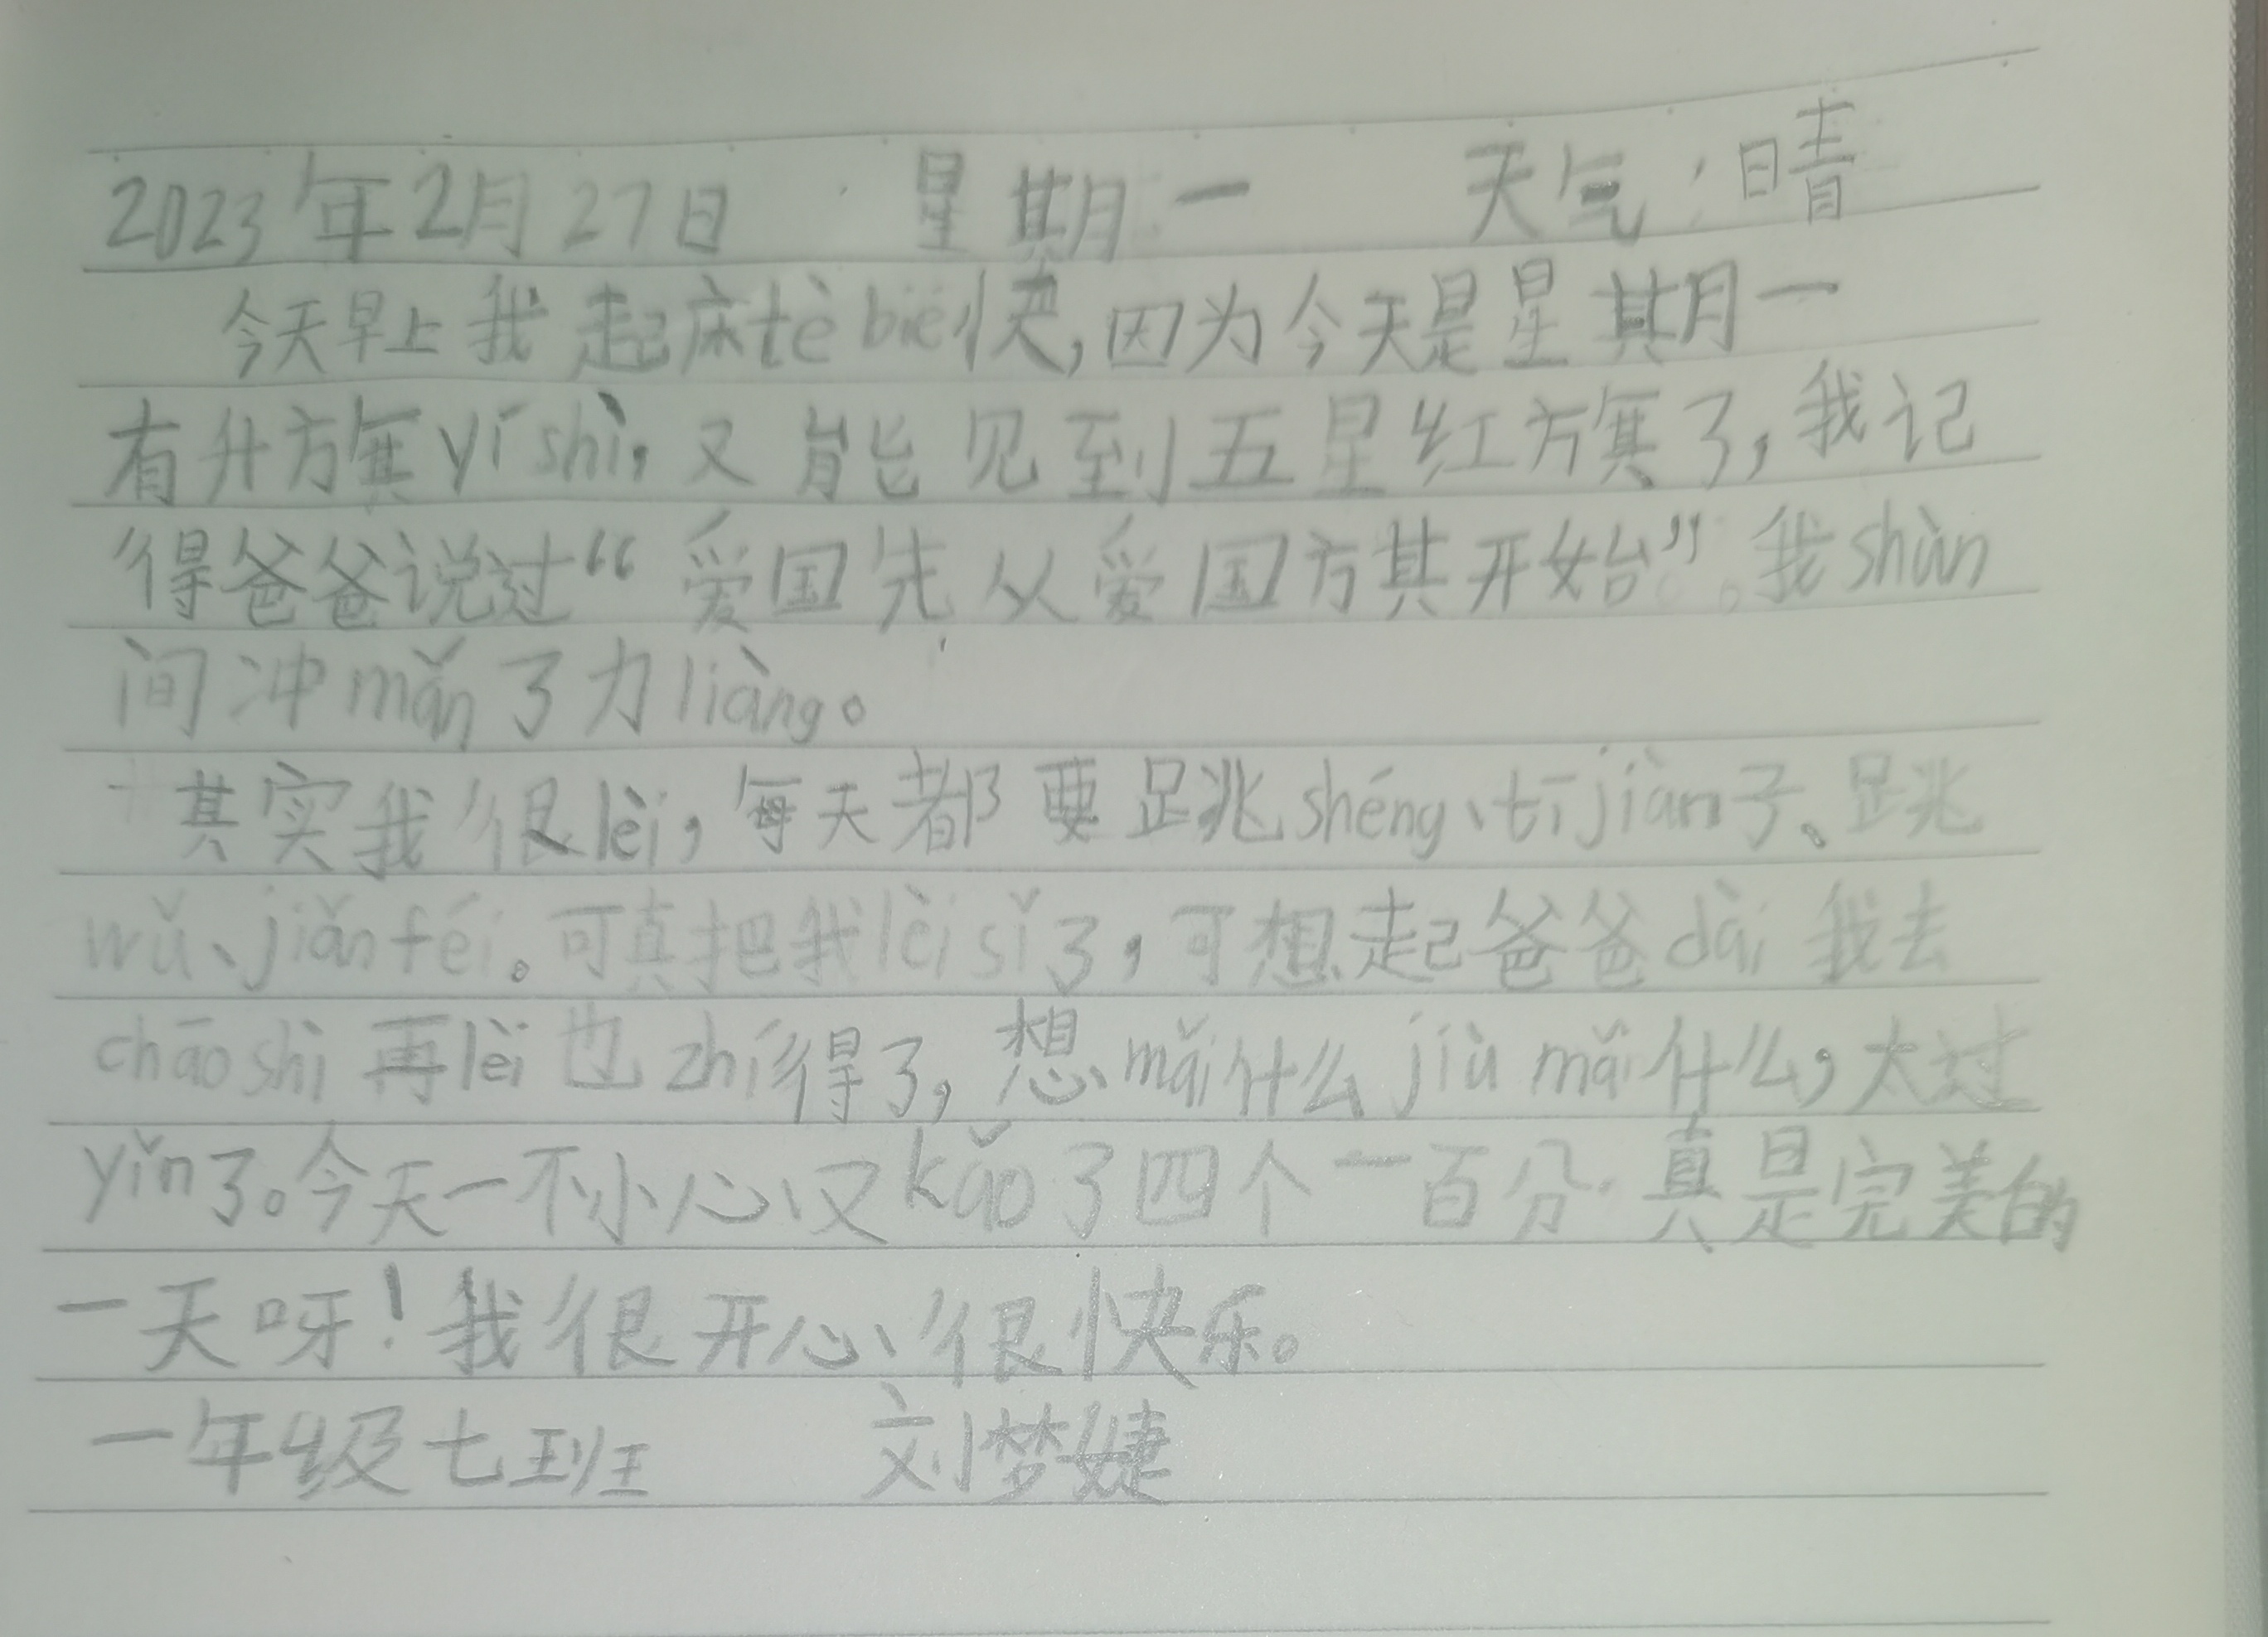 2023年2月27日 星期一 天气:晴
今天早上我起床tè bié快,因为今天是星期一
有升旗yí shì,又能见到五星红旗了,我记
得爸爸说过“爱国先从爱国旗开始”。我shùn
间冲mǎn了力liàng。
其实我很lèi,每天都要跳shéng、tī jiàn子、跳
wǔ、jiǎn féi。可真把我lèi sǐ了,可想起爸爸dài我去
chāo shì再lèi也zhí得了,想mǎi什么jiù mǎi什么,太过
yǐn了。今天一不小心又kǎo了四个一百分.真是完美的
一天呀!我很开心、很快乐。
一年级七班 刘梦婕